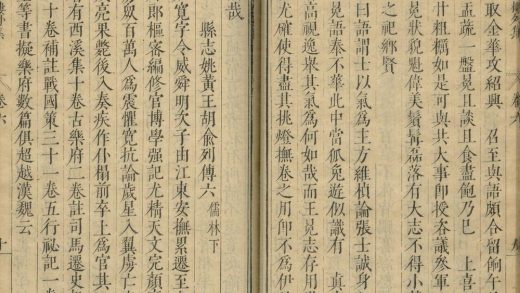 取金華攻紹興 召至與語頗令留餉午
盂蔬一盤冕且談且食盡飽乃已 上喜
粗糲如是可與共大事卽授咨議參軍
冕狀貌魁偉美鬚髯磊落有大志不得小
之祀鄉賢
曰語謂士以氣爲主方維楨論張士誠身
冕語泰不華此中當狐兔遊似識有 真
高視逸舉其氣爲何如哉而王冕志存用
尤確使得盡其挑燈撫卷之用卽不爲伊
哉
縣志姚黃王胡俞列傳六 儒林下
寬字令威舜明次子由江東安撫累遷至
郎樞密編修官博學强記尤精天文完顏
眾百萬人爲震懼寬抗論歲星入翼虜亡
亮果斃後入奏疾作仆榻前卒上爲官其
有西溪集十卷古樂府二卷註司馬遷史
十卷補註戰國策三十一卷五行祕記一
等書擬樂府數篇俱超越漢魏云
卷六
十